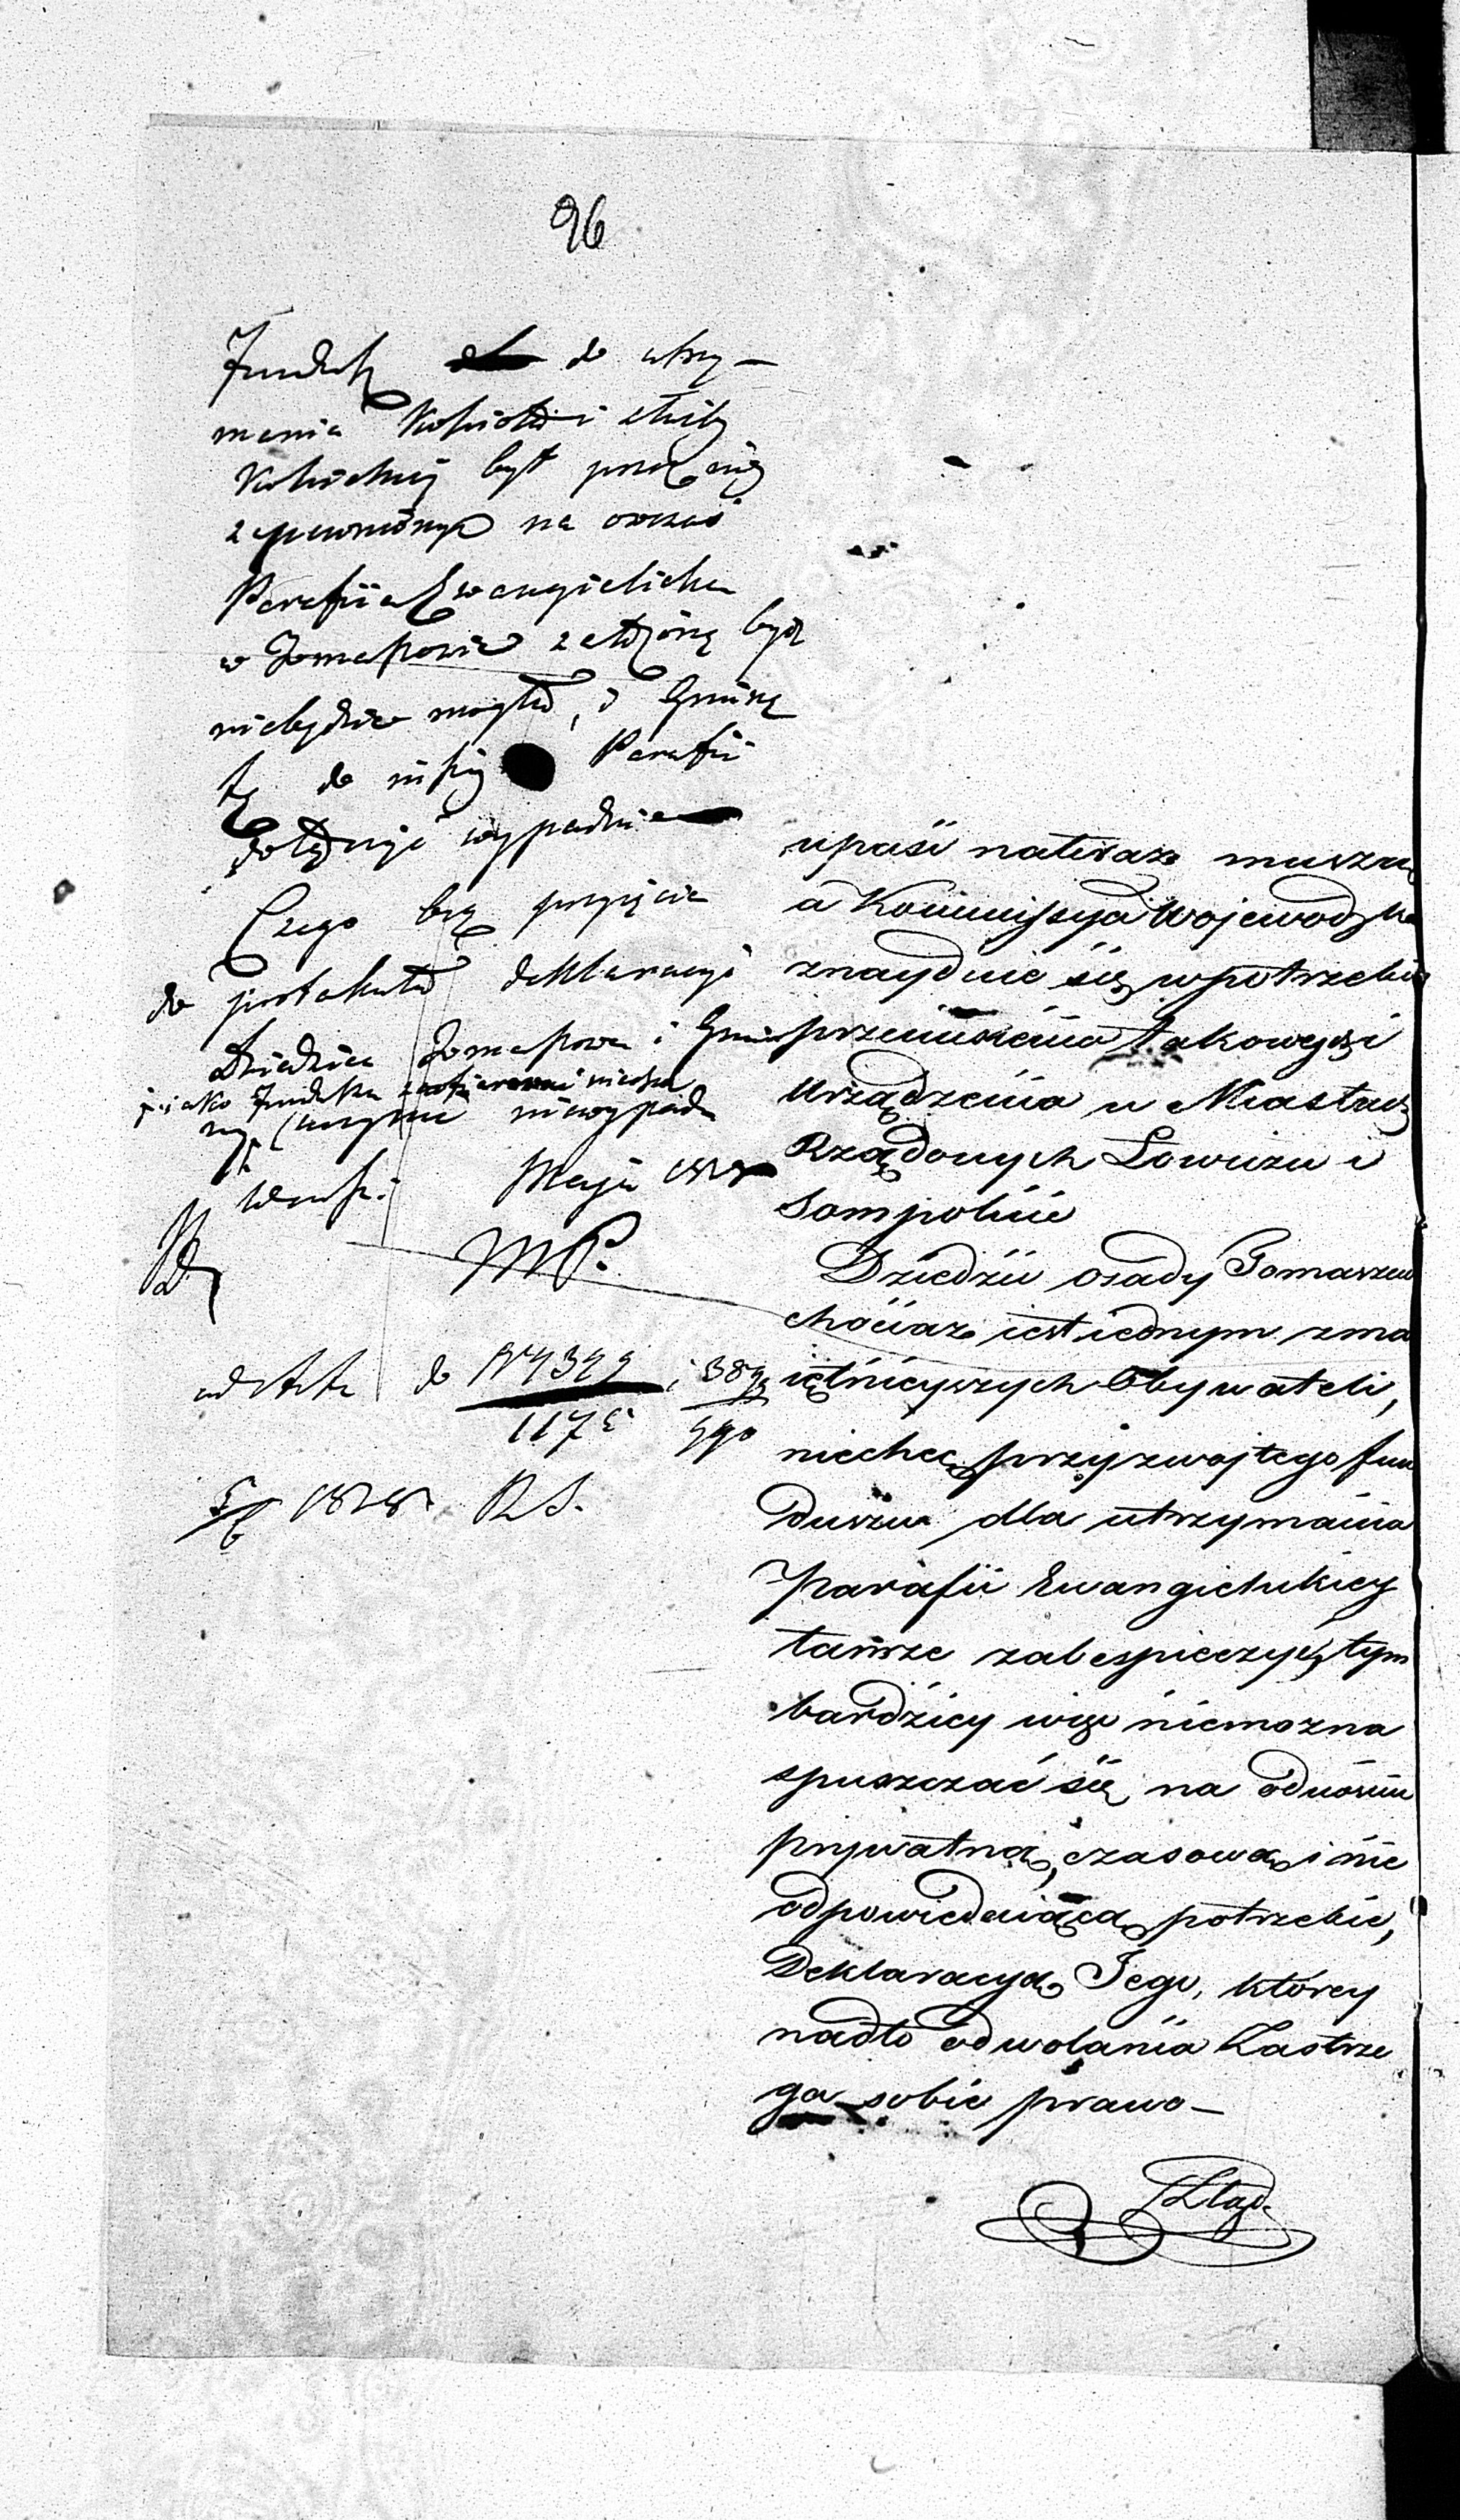 96
Fundusz do utrzy-
mania Kościoła i służby
Kościelnej był prze nię
zapewniony na owczas
Parafiia Ewangielicka
w Tomaszowie założoną być
niebędzie mogła, i Gminę
tę do inszej Parafii
dołączyć wypadnie
Czego bez przyjęcia
do protokułu deklaracyi
Dziedzica Tomaszowa i Gminy
jako Fundusku
uczynić niewypada
Warsz. Maja 1828
MP.
ad Acta do N 4399 i 389
1175 590
1828 RS.
upaść nateraz muszą
a Kommissya Wojewodzka
znayduie się w potrzebie
przeniesienia takowych
Urządzenia w Miastach
Rządowych Łowiczu i
Sompolnie
Dziedzic osady Tomaszew
chociaż iest iednym z ma
iętnieyszych Obywateli,
niechcę przyzwoitego fun
duszu dla utrzymania
Parafii Ewangielickiey
tamże zabespieczyć, tym
bardziey więc niemożna
spuszczać się na odnośnie
prywatną, czasową i nie
odpowiedaiącą potrzebie,
Deklaracyą Jego, którey
nadto odwołania Zastrze
ga sobie prawo -